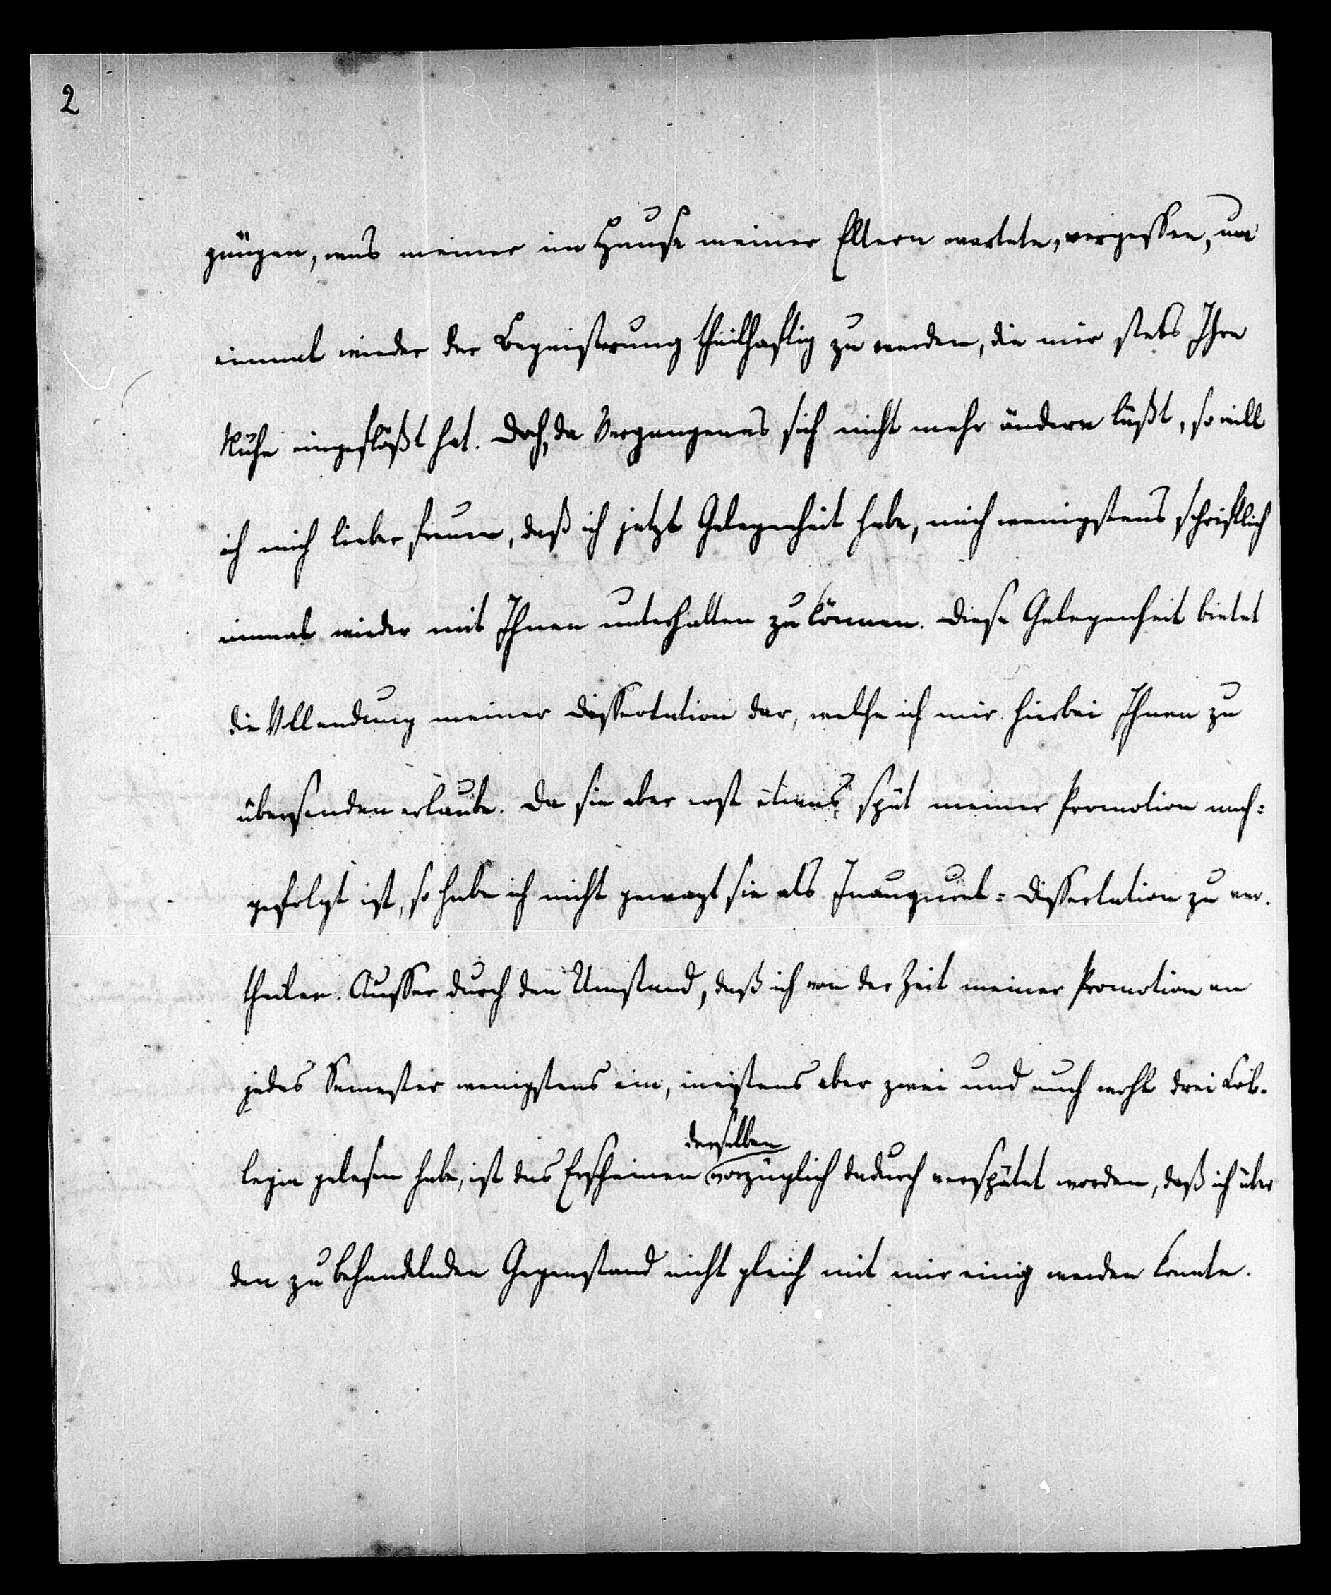 2
gnügen, was meiner im Hause meiner Eltern wartete, vergessen, um
einmal wieder der Begeisterung theilhaftig zu werden, die mir stets Ihre
Nähe eingeflößt hat. Doch, da Vergangenes sich nicht mehr ändern läßt, so will
ich mich lieber freuen, daß ich jetzt Gelegenheit habe, mich wenigstens schriftlich
einmal wieder mit Ihnen unterhalten zu können. Diese Gelegenheit bietet
die Vollendung meiner Dissertation dar, welche ich mir hierbei Ihnen zu
übersenden erlaube. Da sie aber erst etwas spät meiner Promotion nach=
gefolgt ist, so habe ich nicht gewagt sie als Inaugural=Dissertation zu ver-
theilen. Ausser durch den Umstand, daß ich von der Zeit meiner Promotion an
jedes Semester wenigstens ein, meistens aber zwei und auch wohl drei Col-
derselben
legia gelesen habe, ist das Erscheinen vorzüglich dadurch verspätet worden, daß ich über
den zu behandelnden Gegenstand nicht gleich mit mir einig werden konnte.